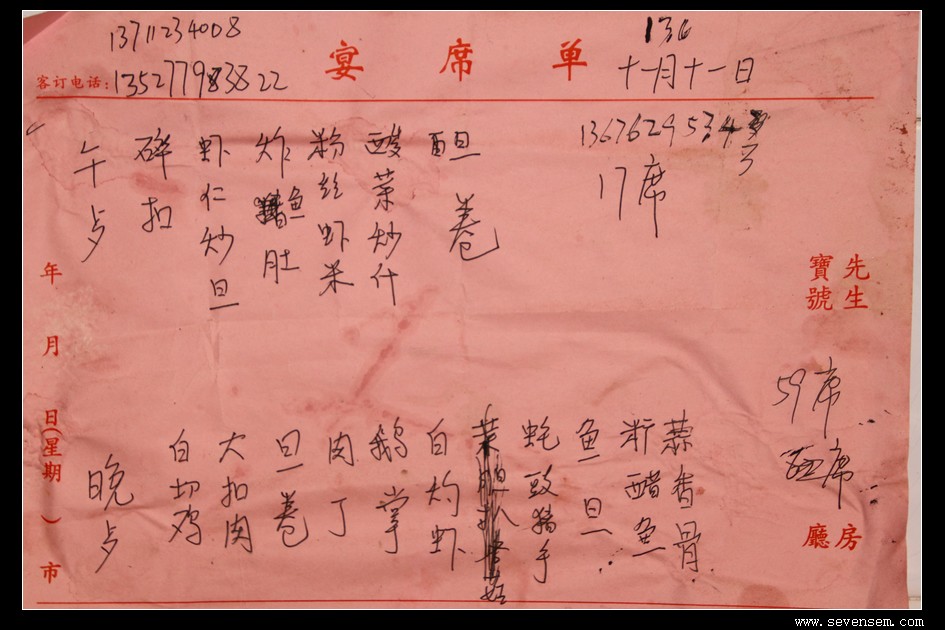 13711234008
宴席单
136
客订电话:
十一月十一日
17席
午歺
碎扣
虾仁炒旦
炸鱼肚
粉丝虾米
酸菜炒什
卷
先生
寶號
年 月 日(星期 )市
59席
席
晚歺
白切鸡
大扣肉
旦卷
肉丁
鹅掌
白灼虾
蚝豉猪手
鱼旦
浙醋鱼
蒜香骨
房
廳
www.sevensem.com